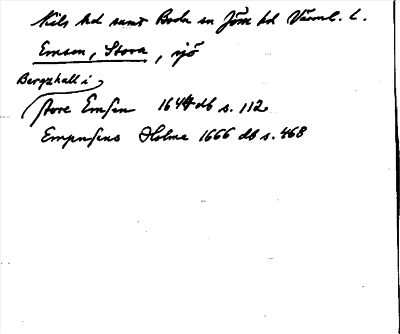 Näls hd samt Boda sn Jösse hd Värml. l.
Emsen, Stora, sjö
Bergshall i
store Emsen 1644 db s. 112
Empnsens Holme 1666 db s. 468